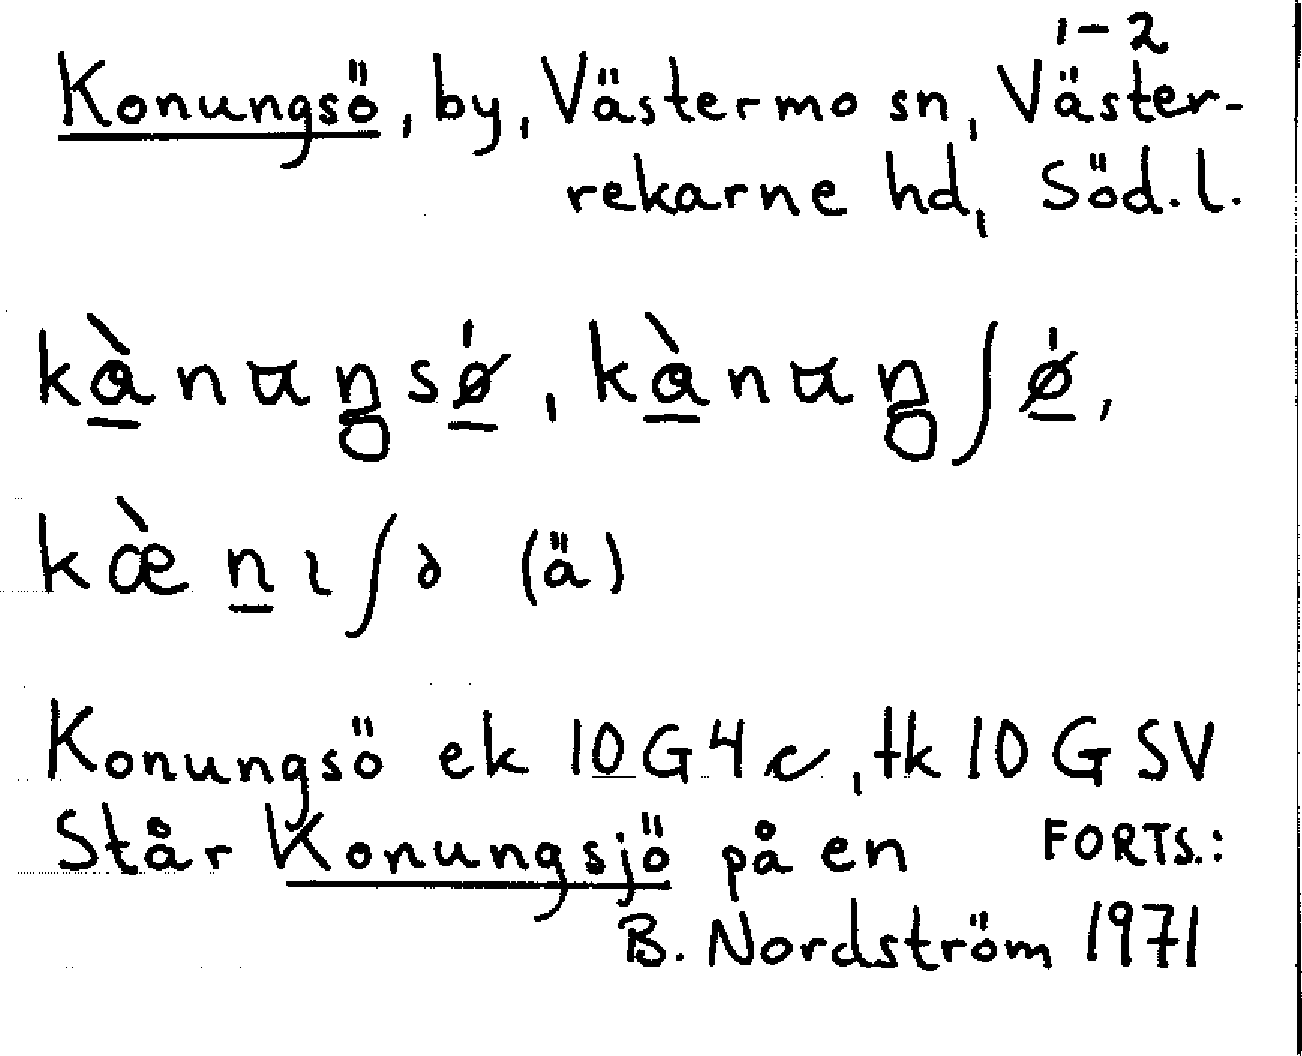 1-2
Konungsö, by, Västermo sn, Väster-
rekarne hd, Söd.l.
kànuŋsǿ, kànuŋʃǿ,
kœ̀nɩʃə (ä)
Konungsö ek 10G4c, tk 10GSV
Står Konungsjö på en FORTS.:
B. Nordström 1971